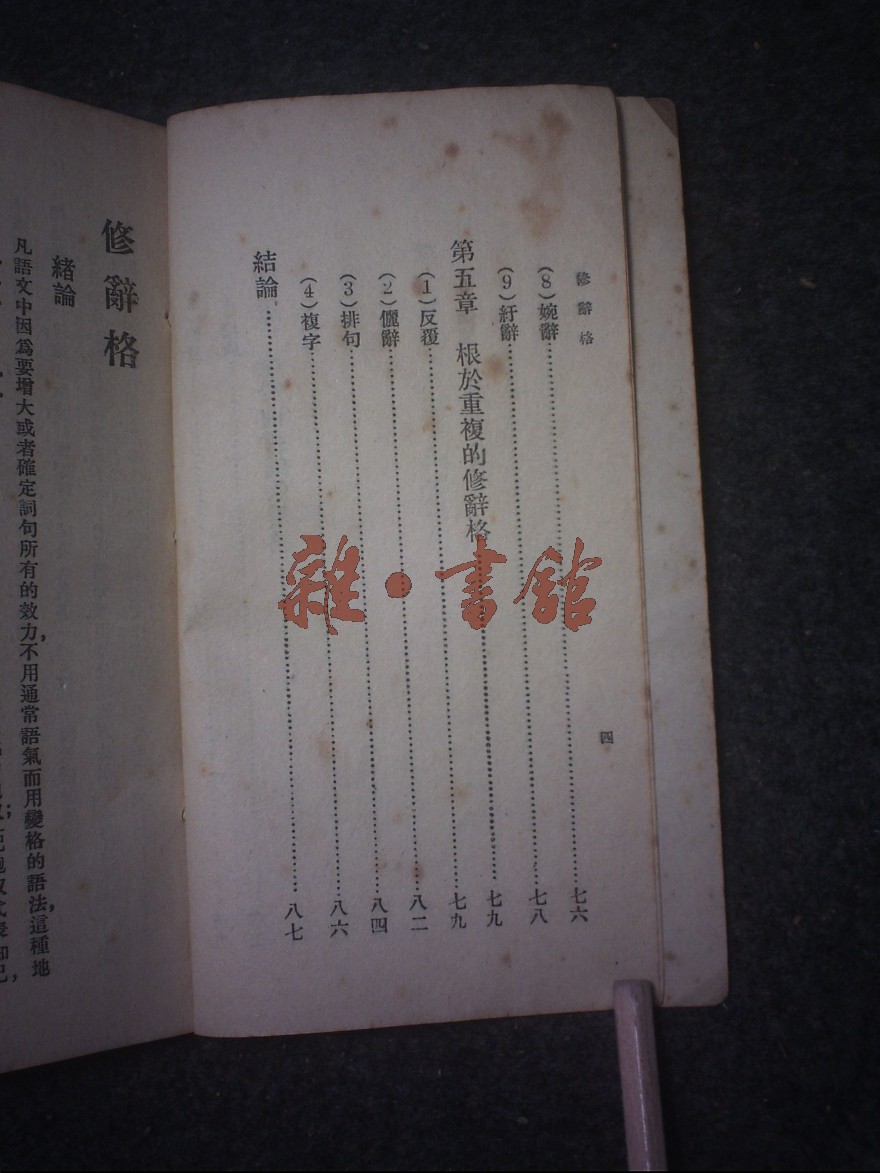 修辭格
四
(8)婉辭……七六
(9)紆辭……七八
第五章 根於重複的修辭格……七九
(1)反覆……七九
(2)儷辭……八二
(3)排句……八四
(4)複字……八六
結論……八七
雜·書館
修辭格
緒論
凡語文中因爲要增大或者確定詞句所有的效力,不用通常語氣而用變格的語法,這種地